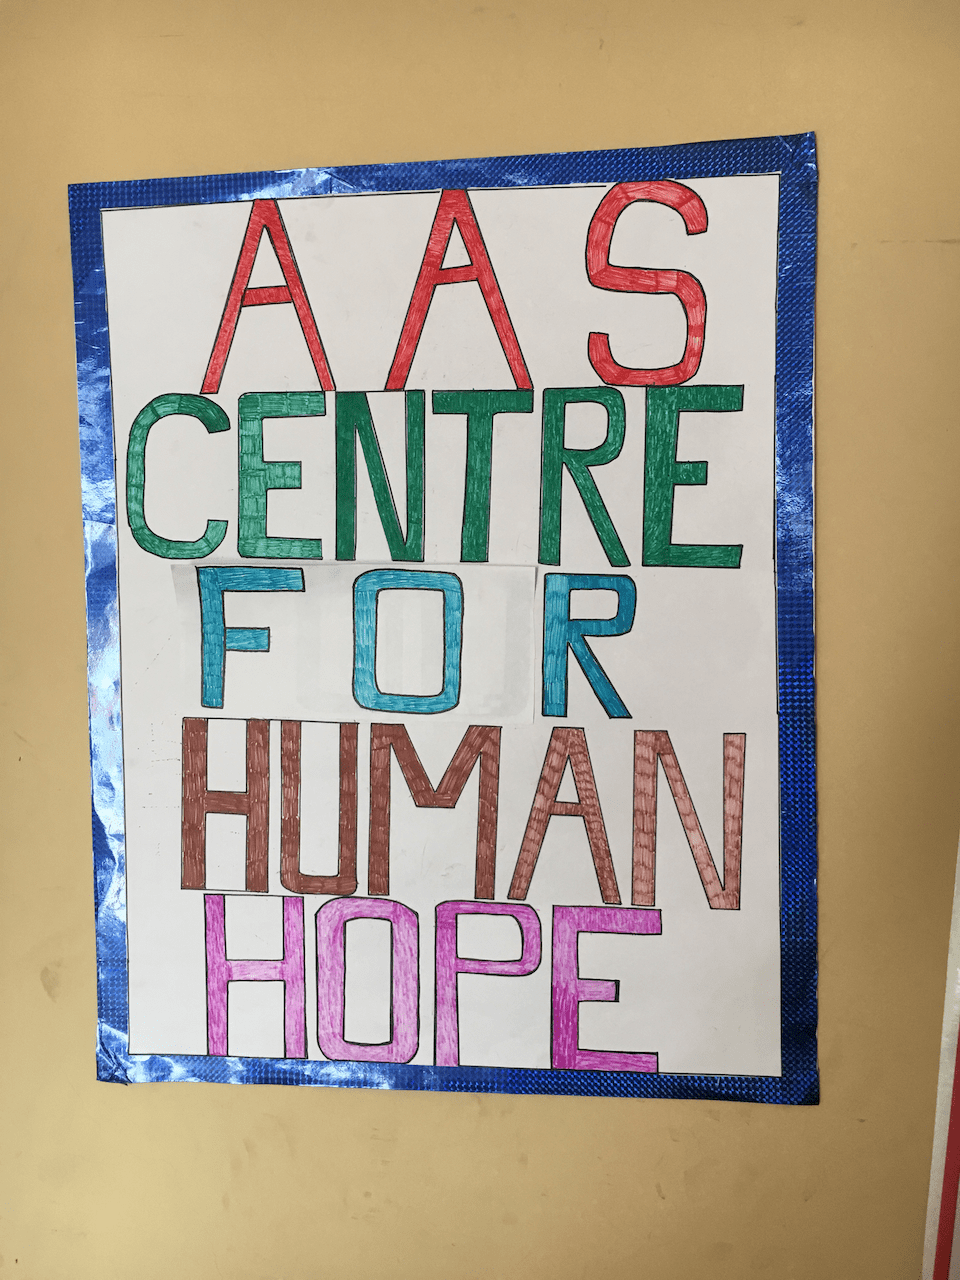 AAS
CENTRE
FOR
HUMAN
HOPE